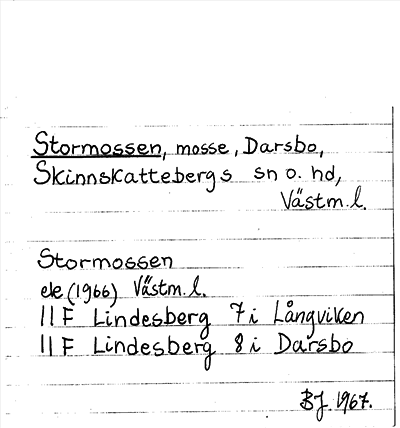 Stormossen, mosse, Darsbo,
Skinnskattebergs sn o. hd,
Västm.l.
Stormossen
ek (1966) Västm.l.
11F Lindesberg 7i Långviken
11F Lindesberg 8i Darsbo
BJ. 1967.